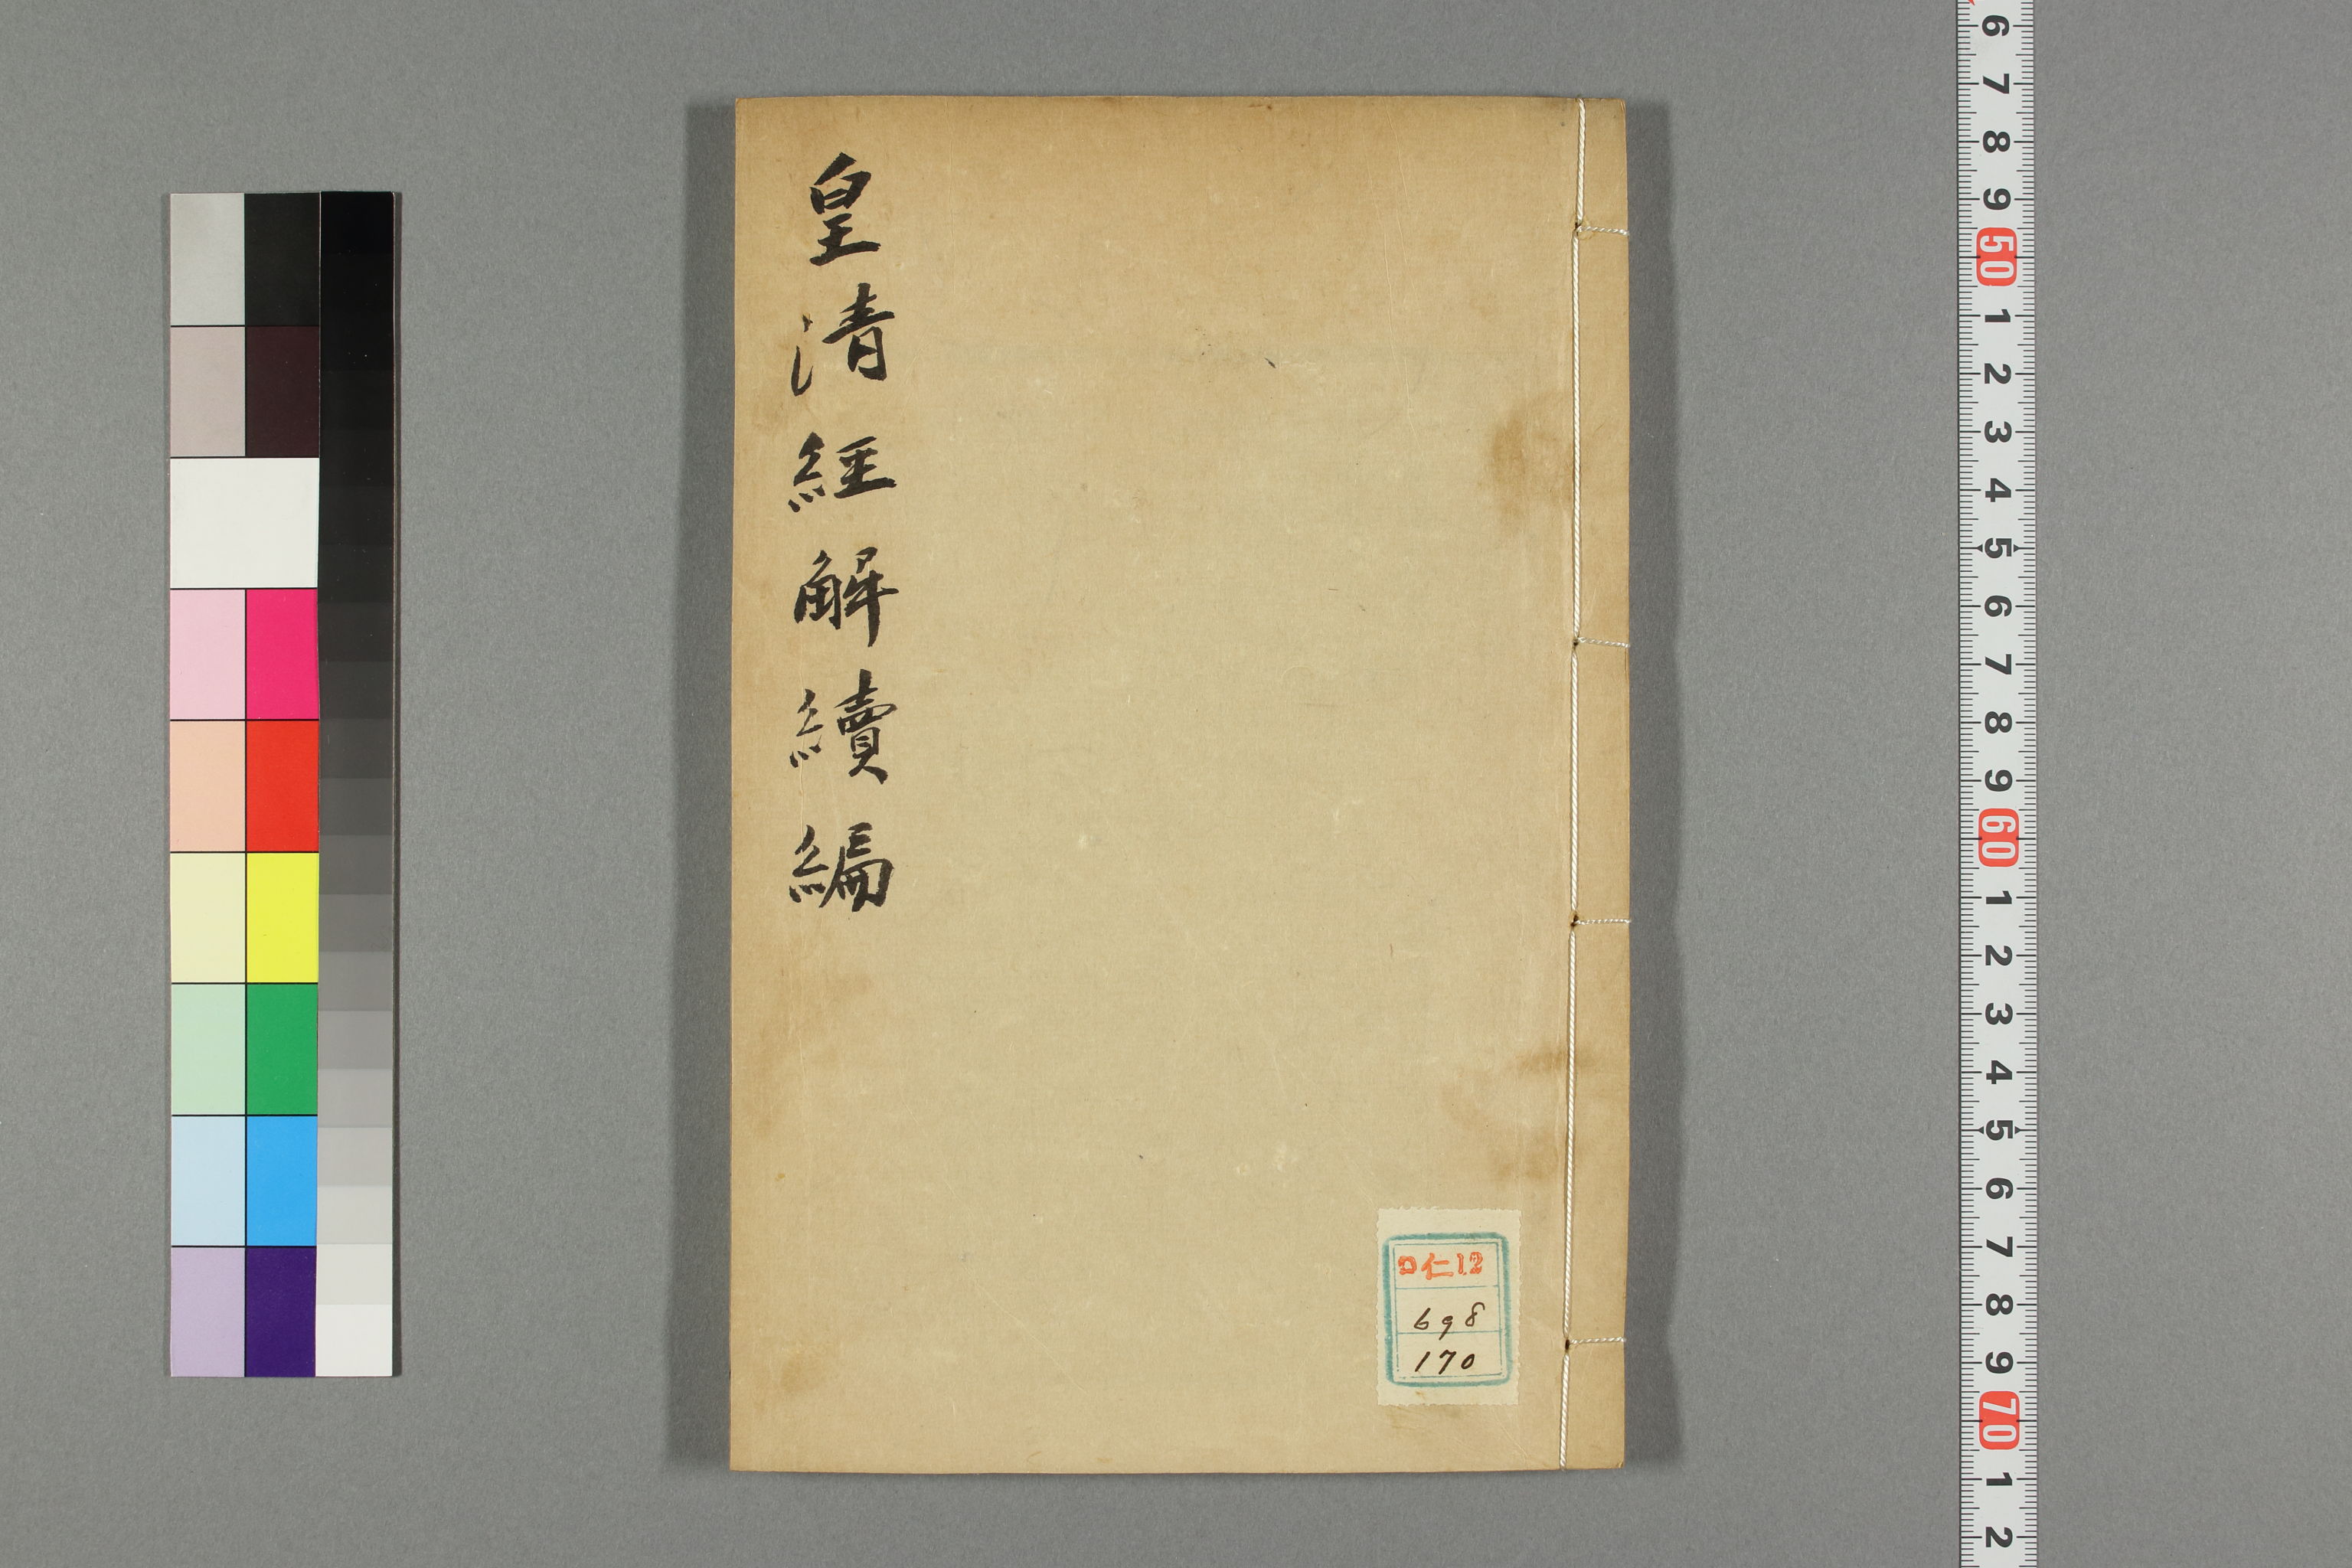 皇清經解續編
ロ仁12
698
170
6
7
8
9
50
1
2
3
4
5
6
7
8
9
60
1
2
3
4
5
6
7
8
9
70
1
2